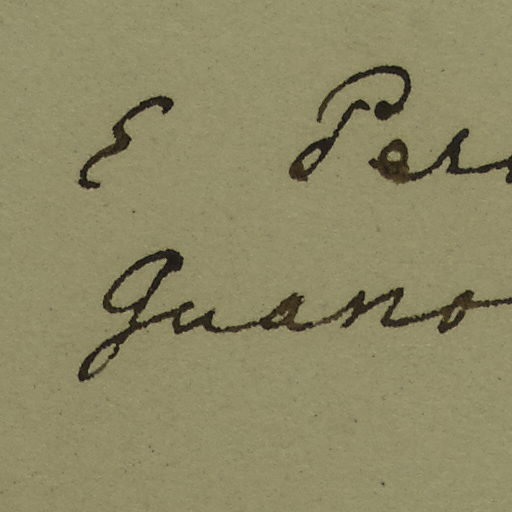 E Per
Guano